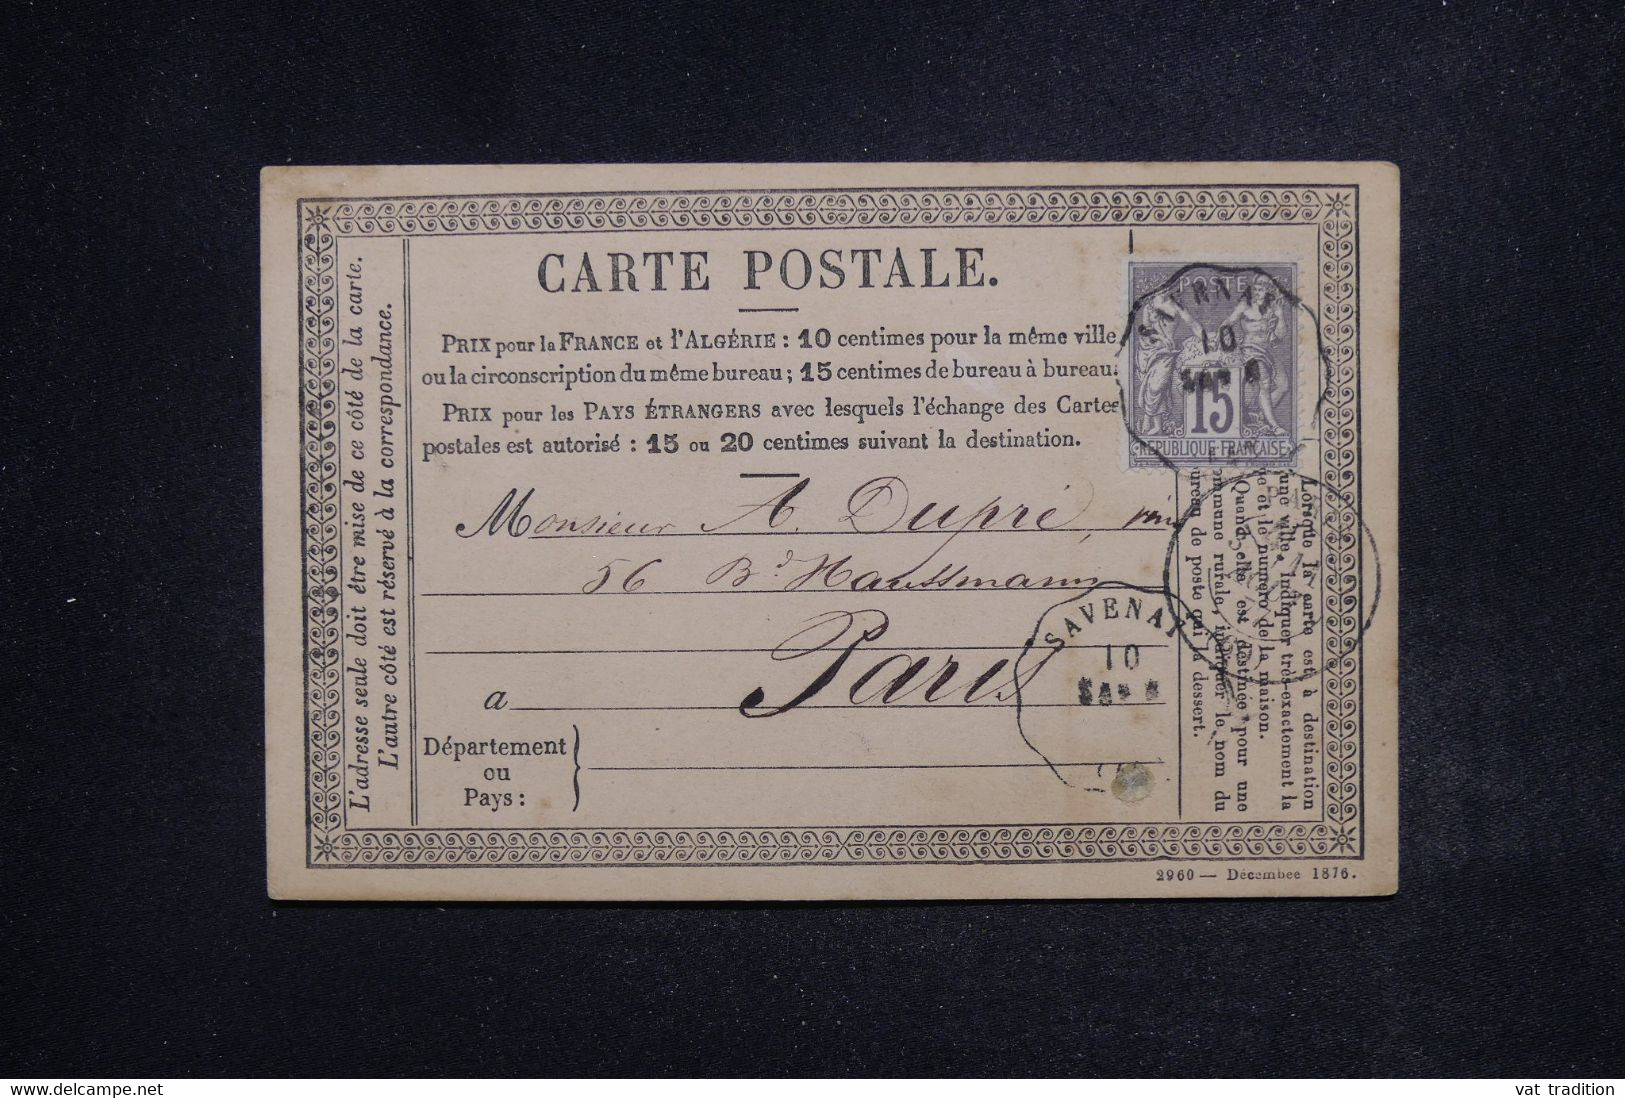 CARTE POSTALE.
PRIX pour la FRANCE et l'ALGÉRIE : 10 centimes pour la même ville
ou la circonscription du même bureau ; 15 centimes de bureau à bureau.
PRIX pour les PAYS ÉTRANGERS avec lesquels l'échange des Cartes
postales est autorisé : 15 ou 20 centimes suivant la destination.
L'adresse seule doit être mise de ce côté de la carte.
L'autre côté est réservé à la correspondance.
POSTE
15
REPUBLIQUE FRANÇAISE
10
Monsieur A. Dupré,
56 Bd Haussmann
a Paris
Département
ou
Pays :
SAVENAY
10
Lorsque la carte est à destination
d'une ville, indiquer très-exactement la
et le numéro de la maison.
Quand elle est destinée pour une
commune rurale, indiquer le nom du
bureau de poste qui la dessert.
2960 — Décembee 1876.
delcampe.net
vat tradition